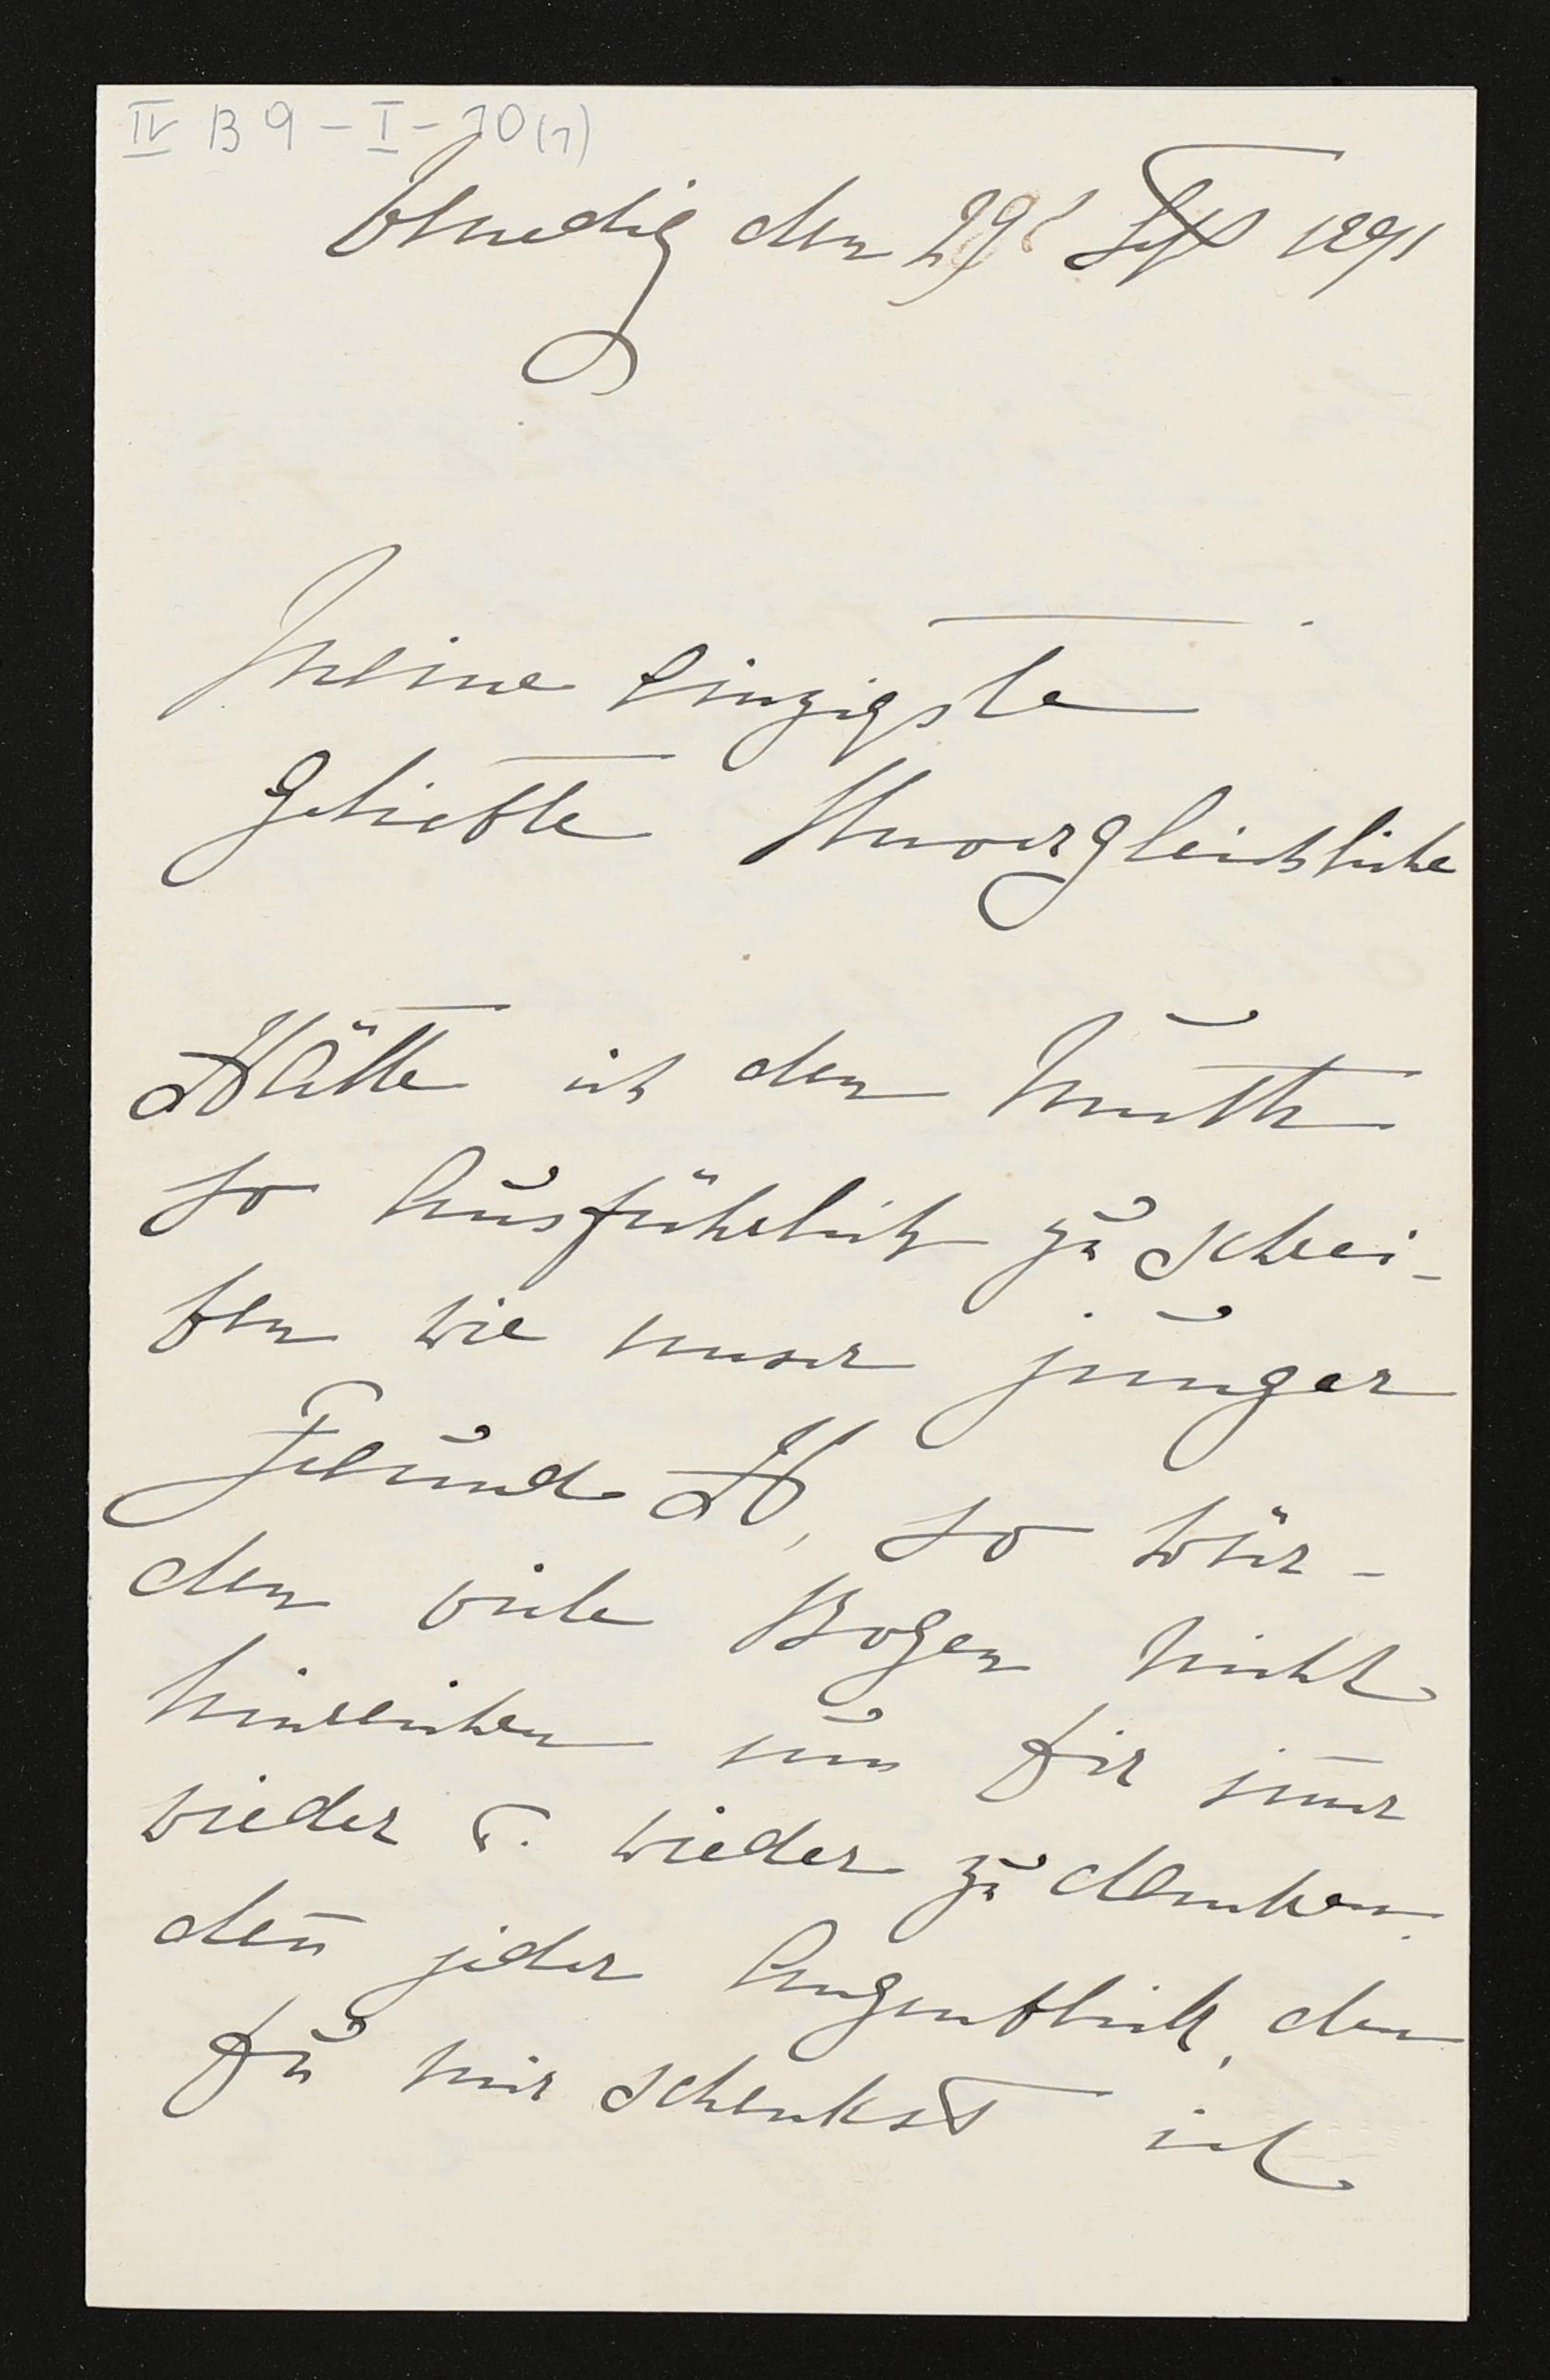 IV B 9 – I – 10 (1)
Venedig den 29t Sept 1891
Meine Einzigste
Geliebte Unvergleichliche
Hätte ich den Muth
so ausführlich zu schrei-
ben wie unser junger
Freund H, so wür-
den viele Bogen nicht
hinreichen um Dir im̄er
wieder u. wieder zu danken.
den̄ jeder Augenblick, den
Du mir schenkst ist